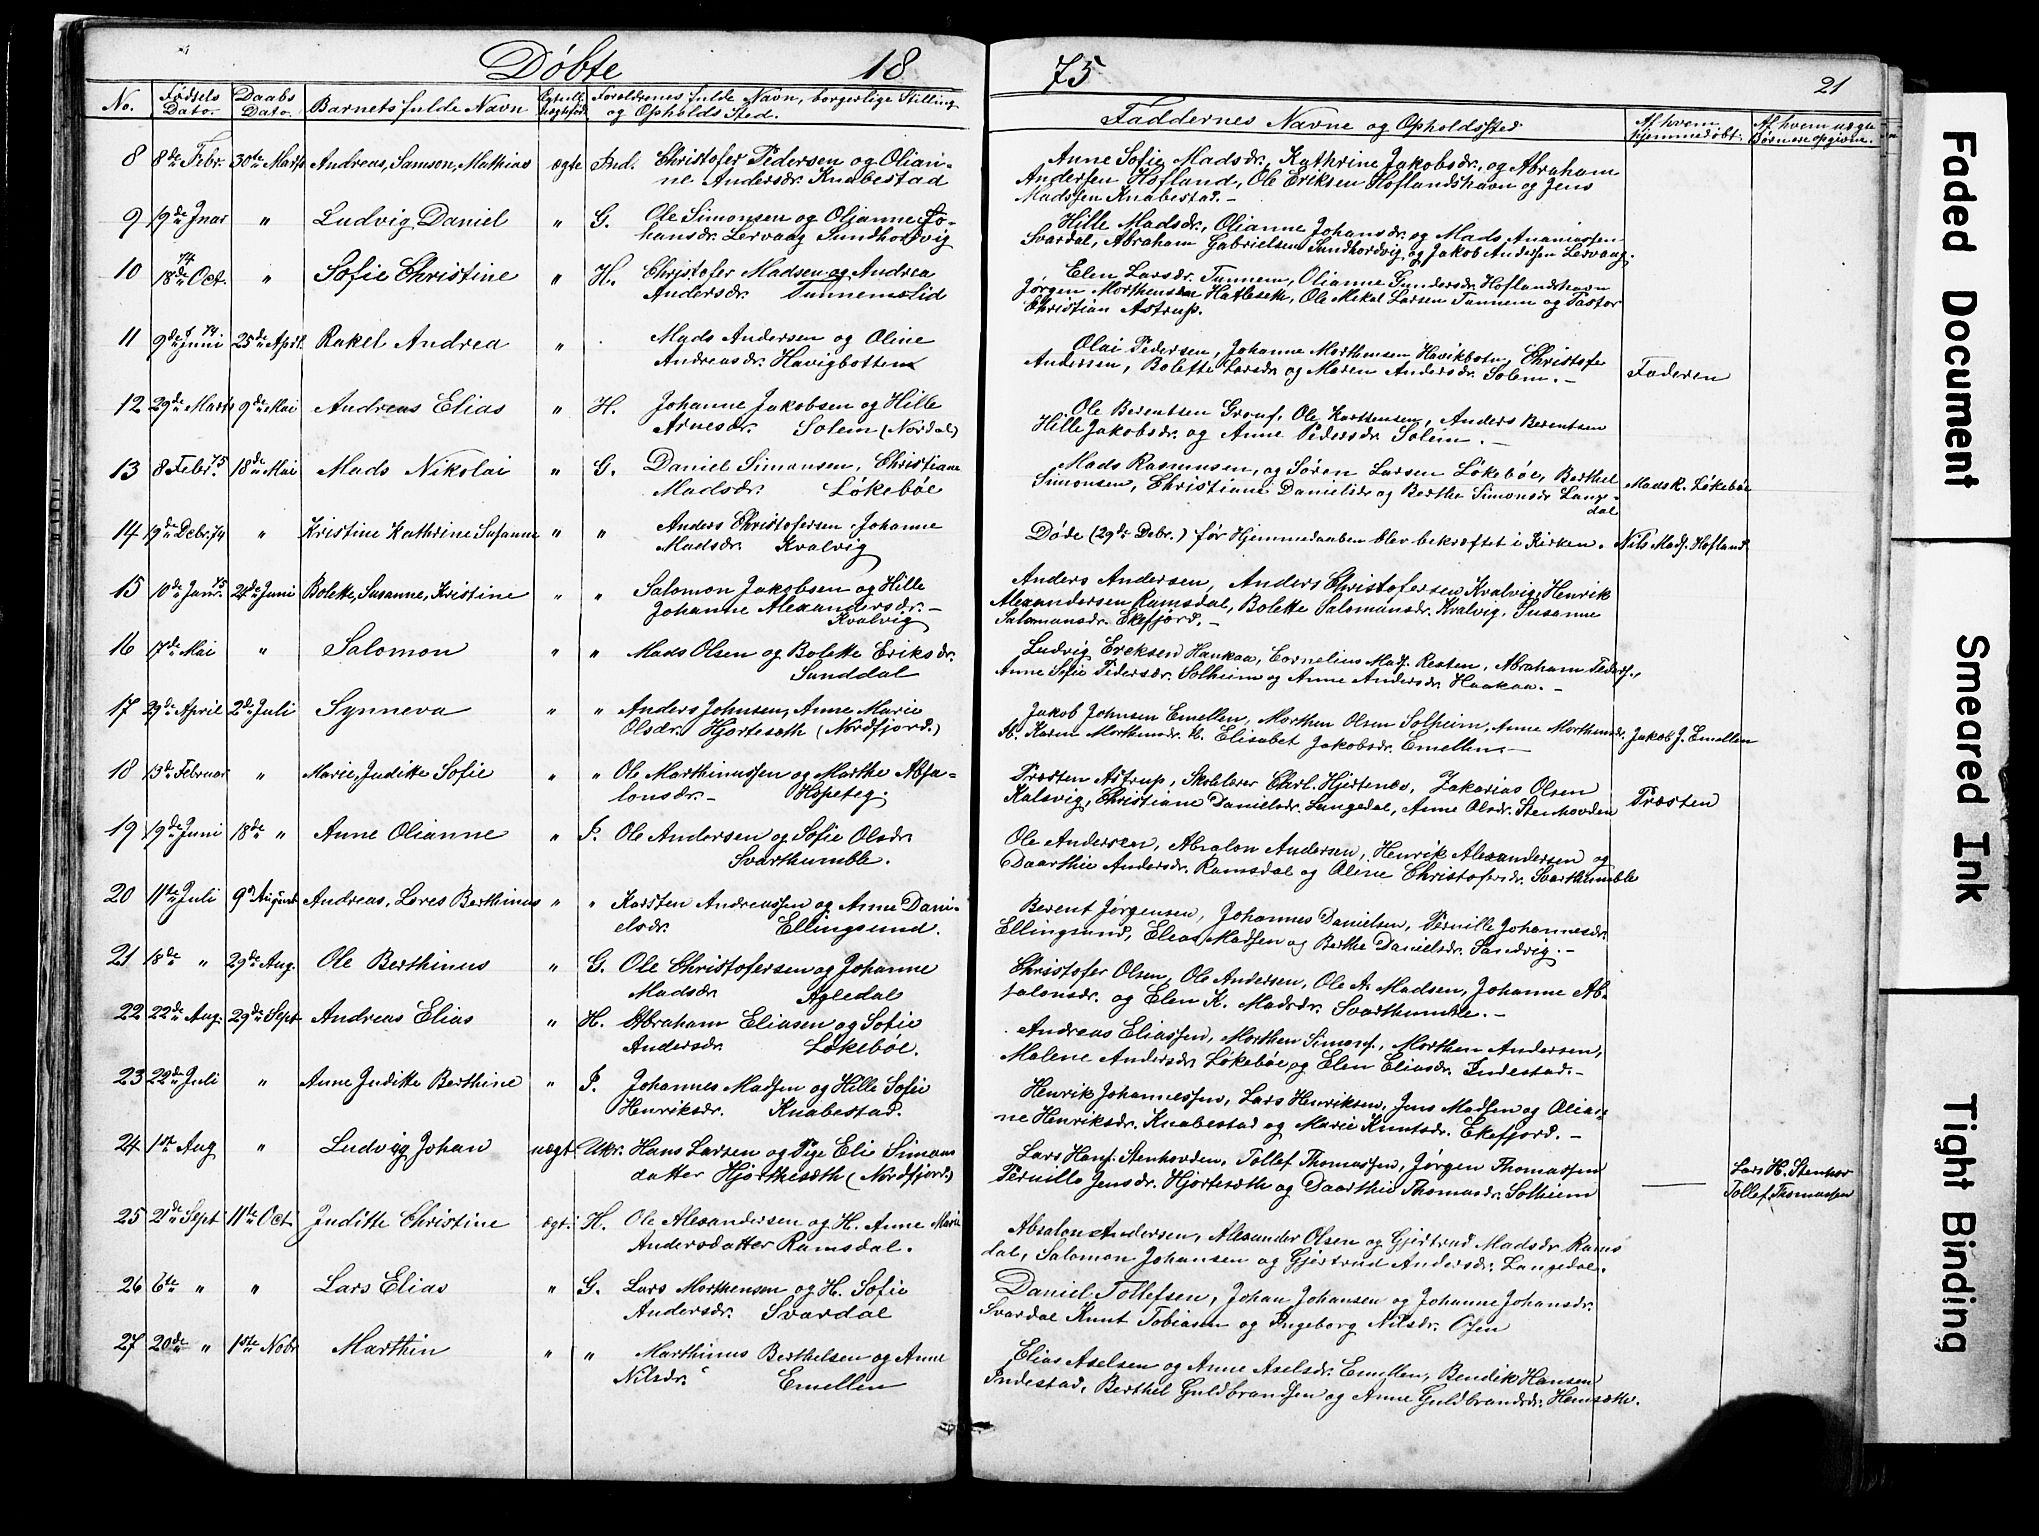 Døbte 18 75 21
No. Fødsels Dato. Daabs Dato. Barnets fulde Navn Forældrenes fulde Navn, borgerlige Stilling og Opholds Sted. Faddernes Navne og Opholdssted Af hvem hjemmedøbt. Af hvem uægte Børn ere opgivne.
8 8de Febr. 30te Marts Andreas, Samson, Mathias ægte Ind. Christofer Pedersen og Olian-
ne Andersdr. Knabestad
Anne Sofie Madsdr., Kathrine Jakobsdr., og Abraham
Andersen Hofland, Ole Eriksen Hoflandshavn og Jens
Madssen Knabestad. -
9 19de Jnar " Ludvig Daniel " G. Ole Simonsen og Olianne Jo-
hansdr. Lervaag Sundhordvig
Hille Madsdr., Olianne Johansdr. og Mads Ananiassen
Svardal, Abraham Gabrielsen Sundhordvig og Jakob Andersen Lervaag.
10 74 18de Oct. " Sofie Christine " H. Christofer Madsen og Andrea
Andersdr. Tunnemslid
Elen Larsdr. Tunnem, Olianne Gundersdr. Hoflandshavn
Jørgen Morthensen Hatleseth, Ole Mikal Larsen Tunnem og Pastor
Christian Astrup.
11 9de Juni 74 25de April. Rakel Andrea " Mads Andersen og Oline
Andreasdr. Havigbotten
Olai Pedersen, Johanne Morthensen Havikbotn, Christofe
Andersen, Bolette Larsdr. og Maren Andersdr. Solem. -
Faderen
12 29de Marts 9de Mai Andreas Elias " H. Johanne Jakobsen og Hille
Arnesdr. Solem (Nordal)
Ole Berentsen Grouf, Ole Karstensen, Anders Berentsen
Hille Jakobsdr. og Anne Pedersdr. Solem. -
13 8 Febr. 75 18de Mai Mads Nikolai " G. Daniel Simonsen, Christiane
Madsdr. Løkebøe
Mads Rasmusen, og Søren Larsen Løkebøe, Berthel
Simonsen, Christiane Danielsdr. og Berthe Simonsdr. Lange-
dal
Mads R. Løkebøe
14 19de Debr. 74 " Kristine Kathrine Susanne " " Anders Christofersen, Johanne
Madsdr. Kvalvig
Døde (29de Debr.) før Hjemmedaaben blev bekræftet i Kirken.
Nils Mads. Hofland
15 10de Janr. 75 24de Juni Bolette, Susanne, Kristine " " Salomon Jakobsen og Hille
Johanne Alexandersdr. -
Kvalvig
Anders Andersen, Anders Christofersen Kvalvig, Henrik
Alexandersen Ramsdal, Bolette Salomonsdr. Kvalvig, Susanne
Salomonsdr. Ekefjord. -
16 17de Mai " Salomon " " Mads Olsen og Bolette Eriksdr.
Sunddal
Ludvig Ereksen Haukaa, Cornelius Mads. Resten, Abraham Peders.,
Anne Sofie Pedersdr. Solheim og Anne Andersdr. Haakaa. -
17 29de April 2de Juli Synneva " " Anders Johnsen, Anne Marie
Olsdr. Hjortesæth (Nordfjord.)
Jakob Johnsen Emellen, Morthen Olsen Solheim, Anne Morthensdr.
H. Karen Morthensdr. H. Elisabet Jakobsdr. Emellen. -
Jakob J. Emellen
18 13de Februar " Marie, Juditte Sofie " " Ole Marthinussen og Marthe Absa-
lonsdr. - Hopeteg.
Præsten Astrup, Skolelærer Charl. Hjertenæs, Zakarias Olsen
Kalsvig, Christiane Danielsdr. Langedal, Anne Olsdr. Stenhovden
Præsten
19 19de Juni 18de " Anne Olianne " I. Ole Andersen og Sofie Olsdr.
Svarthumble.
Ole Andersen, Absalon Andersen, Henrik Alexandersen og
Daarthie Andersdr. Ramsdal og Oline Christofersdr. Svarthumble
20 11te Juli 9de August Andreas, Lores Berthinus " " Karsten Andreassen og Anne Dani-
elsdr. Ellingsund.
Berent Jørgensen, Johannes Danielsen, Pernille Johannesdr.
Ellingsund, Elias Madssen og Berthe Danielsdr. Sandvig. -
21 18de " 29de Aug. Ole Berthinus " G. Ole Christofersen og Johanne
Madsdr. Agledal
Christofer Olsen, Ole Andersen, Ole A. Madsen, Johanne Ab-
salonsdr. og Elen K. Madsdr. Svarthumle. -
22 22de Aug. 29de Sept Andreas Elias " H. Abraham Eliasen og Sofie
Andersdr. Løkebøe.
Andreas Eliassen, Morthen Simons., Morthen Andersen,
Malene Andersdr. Løkebøe og Elen Eliasdr. Indestad. -
23 22de Juli " Anne Juditte Berthine " I. Johannes Madsen og Hille Sofie
Henriksdr. Knabestad.
Henrik Johannessen, Lars Henriksen, Jens Madsen og Olian-
ne Henriksdr. Knabestad og Marie Knutsdr. Ekefjord. -
24 1ste Aug " Ludvig Johan uægt. Ukr. Hans Larsen og Pige Eli Simons
datter Hjorthesæth (Nordfjord.)
Lars Hans. Stenhovden, Tollef Thomassen, Jørgen Thomassen
Pernille Jensdr. Hjortesæth og Daarthie Thomasdr. Solheim
Lars H. Stenhov
Tollef Thomassen
25 21de Sept 11te Oct. Juditte Christine ægt. H. Ole Alexandersen og H. Anne Marie
Andersdatter Ramsdal.
Absalon Andersen, Alexander Olsen og Gjertrud Madsdr. Rams
dal, Salomon Johansen og Gjertrud Andersdr. Langedal.
26 6te " " Lars Elias " G. Lars Morthensen og H. Sofie
Andersdr. Svardal
Daniel Tollefsen, Johan Johansen og Johanne Johansdr.
Svardal Knut Tobiasen og Ingeborg Nilsdr. Osen
27 20de " 1ste Nobr Marthin " " Marthinus Berthelsen og Anne
Nilsdr. Emellen
Elias Aselsen og Anne Aselsdr. Emellen, Bendik Hansen
Indestad, Berthel Guldbrandsen og Anne Guldbrandsdr. Hemsæth.
Faded Document
Smeared Ink
Tight Binding